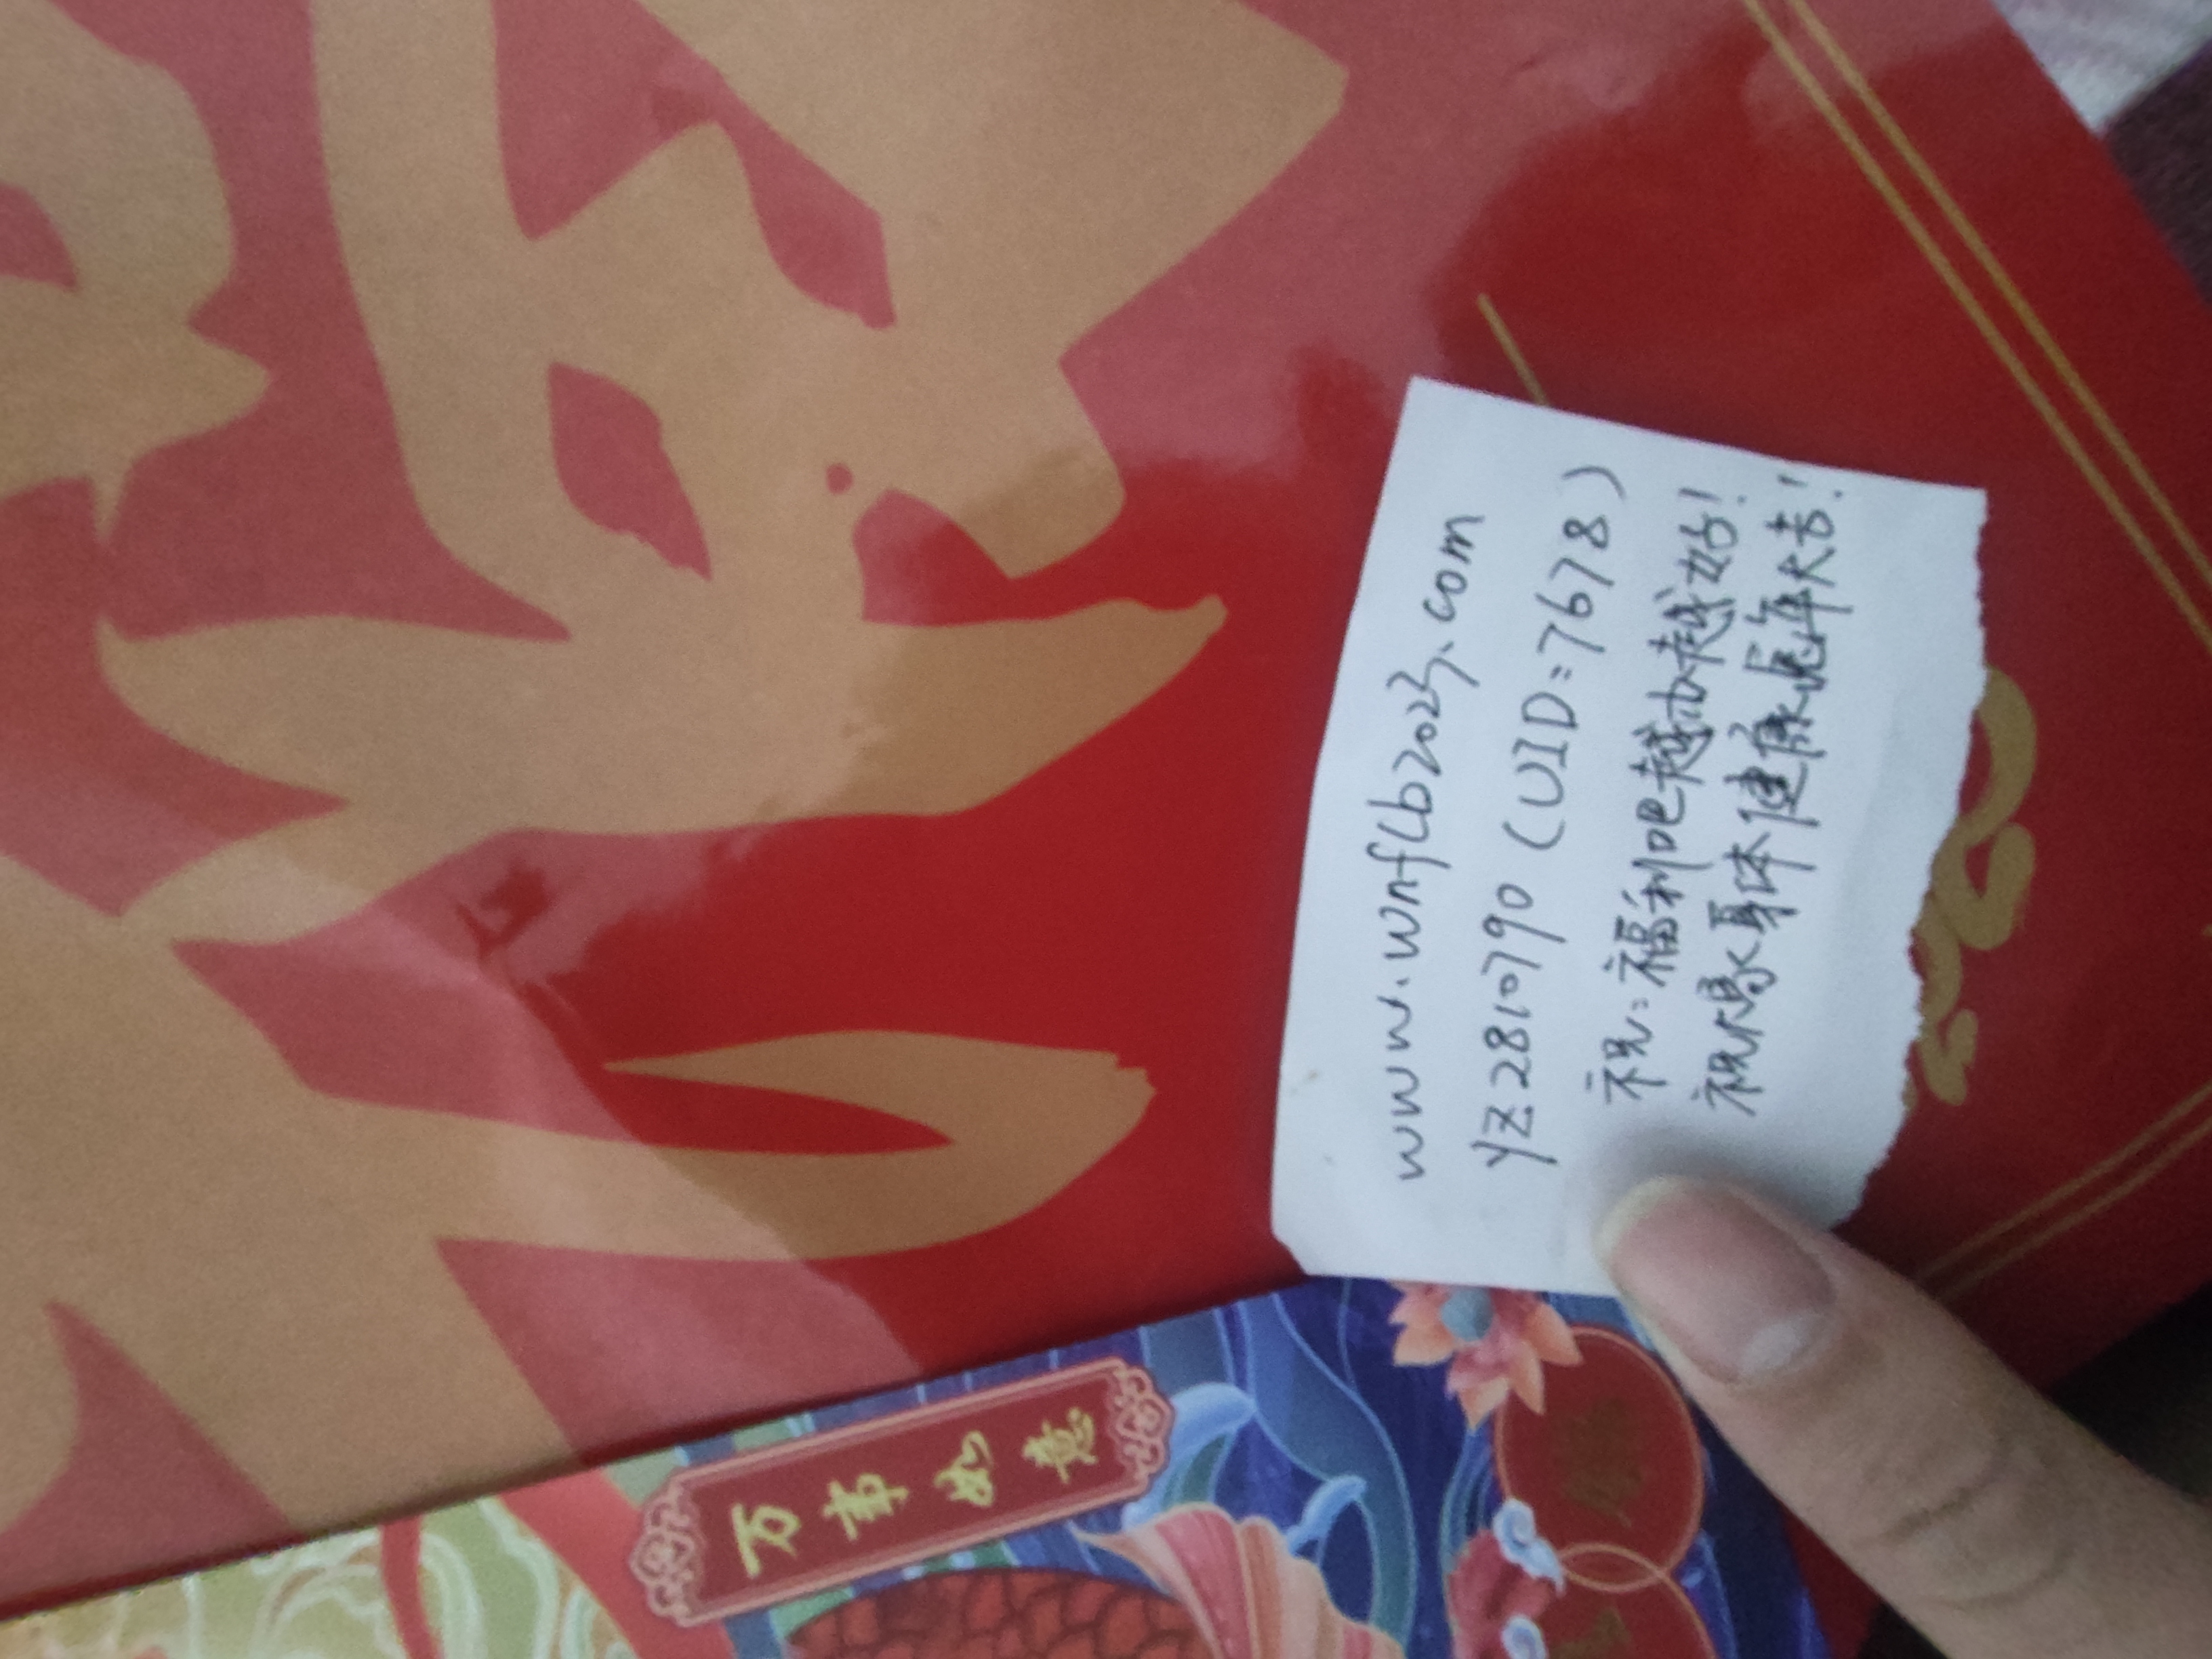 万事如意
www.wnflb2023.com
yz2810790 (UID:7678)
祝:福利吧越办越好!
祝大家身体健康虎年大吉!